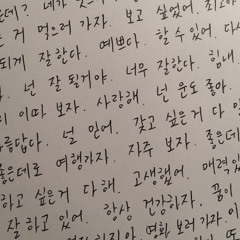 는 거 먹으러 가자. 보고 싶었어. 최고야
되게 잘한다. 예쁘다. 할 수 있어. 다
넌 잘 될거야. 너무 잘한다. 힘내.
이따 보자. 사랑해. 넌 운도 좋아.
름답다. 널 믿어. 갖고 싶은거 다
좋은데로 여행가자. 자주 보자. 좋은데
하고 싶은거 다 해. 고생했어. 매력있
잘하고 있어. 항상 건강하자. 꿈이
영화 보러 가자. 이